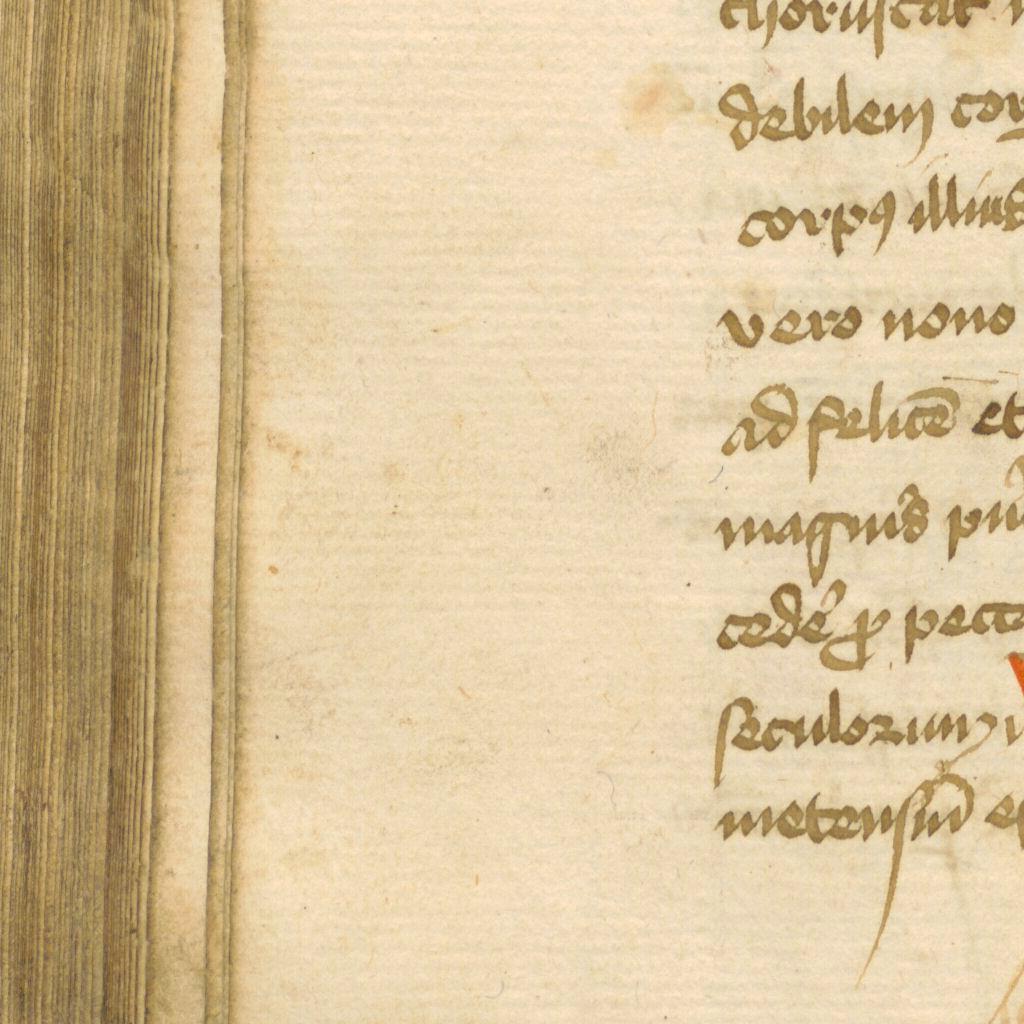 choruscat
debilem cor
corpꝰ illius
vero nono
ad felicē et
magnis
cedēꝰ ꝓ pecca
seculorum
metensiū ep